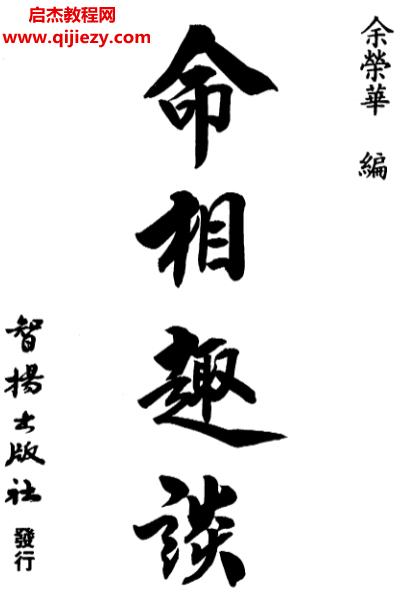 启杰教程网
www.qijiezy.com
余榮華 編
命相趣談
智揚出版社 發行